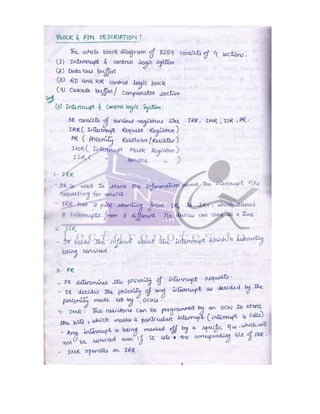 BLOCK & PIN DESCRIPTION :
The whole block diagram of 8259 consists of 4 sections.
(1) Interrupt & control logic system
(2) Data bus buffer
(3) RD and WR control logic back
(4) Cascade buffer / Comparator section
(1) Interrupt & control logic system:
It consists of various registers like IRR, IMR, ISR, PR.
IRR ( Interrupt Request Register )
PR ( Priority Resolver / Resistor )
IMR ( Interrupt Mask Register )
ISR ( " service " )
1. IRR
- It is used to store the information about the interrupt
requesting for service.
- IRR has 8 pins starting from IR0 to IR7, which allows
8 interrupts from 8 different I/o devices can come at a time
2. ISR
It holds the about the interrupt which is currently
being serviced.
3. PR
- It determines the priority of interrupt requests.
- It decides the priority of any interrupt as decided by the
priority mode set by OCWs
4. IMR : This resistors can be programmed by an OCW to store
the bits, which masks a particular interrupt
- Any interrupt is being masked off by a specific which will
not be serviced even if it sets the corresponding bit of IRR.
- IMR operates on IRR.
lecturenotes.in